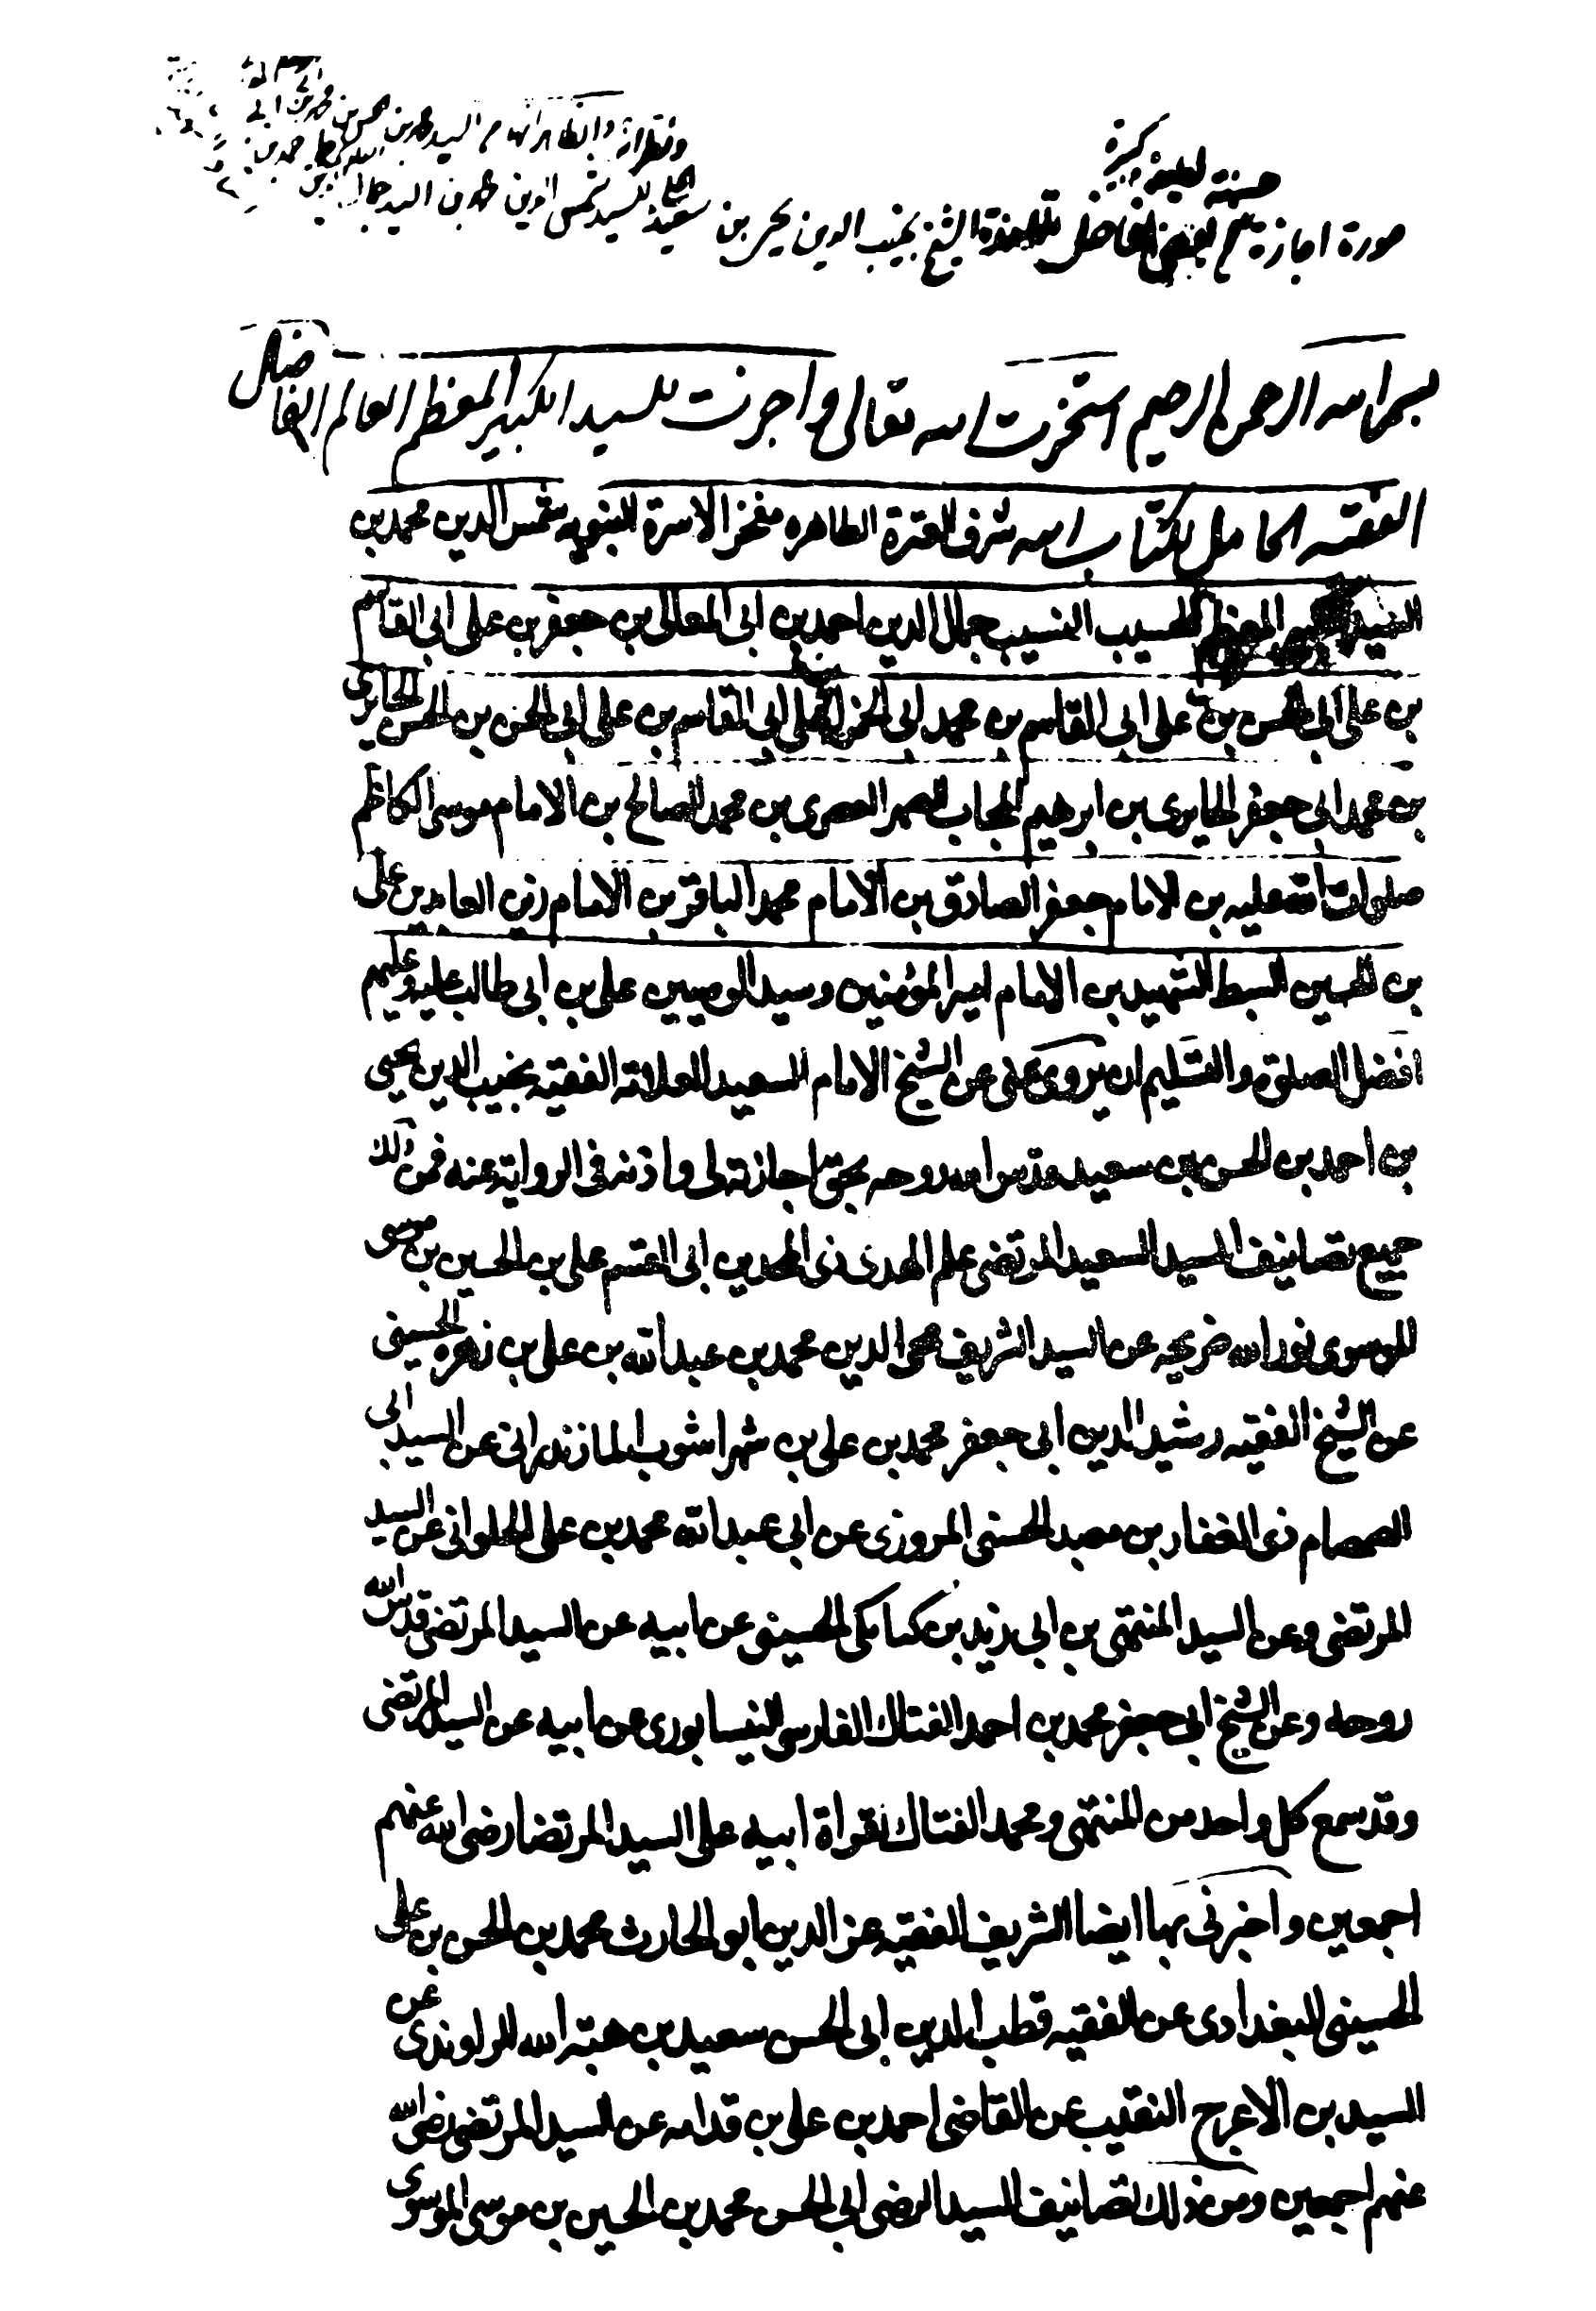 حسنة لطيفة كبيرة
صورة اجازة بعض افاضل تلامذة الشيخ نجيب الدين يحيى بن سعيد للسيد شمس الدين محمد بن السيد جمال الدين
بسم الله الرحمن الرحيم استخرت الله تعالى واجزت للسيد الكبير المعظم العالم الفاضل
الفقيه الحامل لكتاب الله شرف العترة الطاهره مفخر الاسرة النبويه شمس الدين محمد بن
السيد المعظم الحسيب النسيب جمال الدين احمد بن ابى المعالى بن جعفر بن على ابى القاسم
بن على ابى الحسن بن على ابى القاسم بن محمد ابى الحمرا على ابى القاسم بن على ابى الحسن بن الحسن الحايرى
بن محمد ابى جعفر الحايرى بن ابرهيم المجاب الصهر العمرى بن محمد الصالح بن الامام موسى الكاظم
صلوات الله عليه بن الامام جعفر الصادق بن الامام محمد الباقر بن الامام زين العابدين على
بن الحسين السبط الشهيد بن الامام امير المؤمنين وسيد الوصيين على بن ابى طالب عليه وعليهم
افضل الصلوة والتسليم ان يروى عنى عن الشيخ الامام السعيد العلامة الفقيه نجيب الدين يحيى
بن احمد بن الحسن بن سعيد قدس الله روحه بحق اجازته لى واذنه فى الرواية عنه فمن ذلك
جميع تصانيف السيد السعيد المرتضى علم الهدى ذى المجدين ابى القسم على بن الحسين بن موسى
الموسوى نور الله ضريحه عن السيد الشريف محى الدين محمد بن عبد الله بن على بن زهره الحسينى
عن الشيخ الفقيه رشيد الدين ابى جعفر محمد بن على بن شهراشوب المازندرانى عن السيد ابى
الصمصام ذى الفقار بن معبد الحسنى المروزى عن ابى عبد الله محمد بن على الحلوانى عن السيد
المرتضى وعن السيد المنتهى بن ابى زيد بن كيابكى الحسينى عن ابيه عن السيد المرتضى قدس الله
روحه وعن الشيخ ابى جعفر محمد بن احمد الفتال الفارسى النيسابورى عن ابيه عن السيد المرتضى
وقد سمع كل واحد من المنتهى ومحمد الفتال بقراة ابيه على السيد المرتضا رضى الله عنهم
اجمعين واخبرنى بها ايضا الشريف الفقيه عز الدين ابو الحارث محمد بن الحسن بن على
الحسينى البغدادى عن الفقيه قطب الدين ابى الحسن سعيد بن هبة الله الراوندى عن
السيد بن الاعرج النقيب عن القاضى احمد بن على بن قدامه عن السيد المرتضى رضى الله
عنهم اجمعين ومن ذلك تصانيف السيد الرضى ابى الحسن محمد بن الحسين بن موسى الموسوى